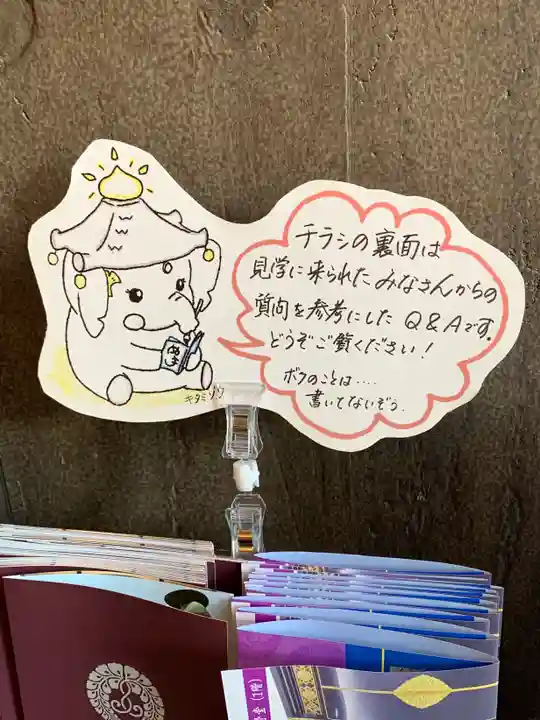 チラシの裏面は
見学に来られたみなさんからの
質問を参考にした Q&Aです。
どうぞご覧ください！
ボクのことは....
書いてないぞう.
キタミゾウ
(1階)